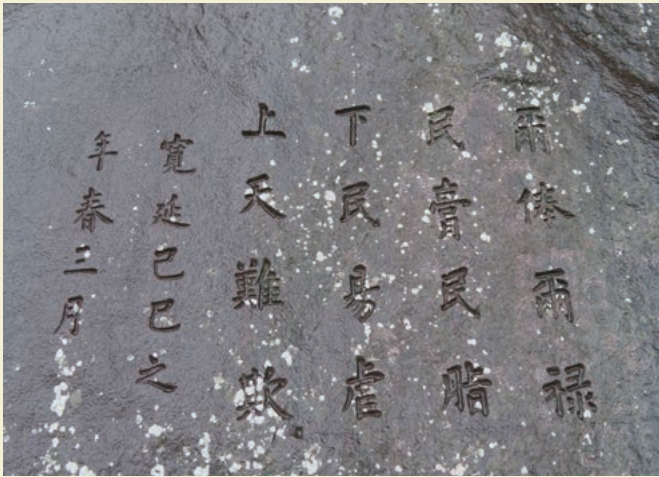 爾俸爾禄
民膏民脂
下民易虐
上天難欺
寛延己巳之
年春三月